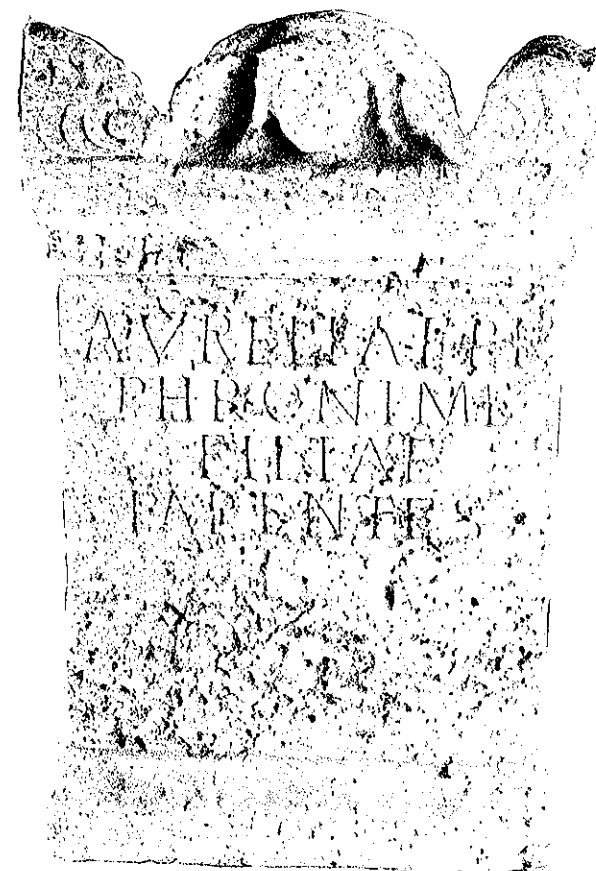 AVRELIAEPI
PHRONIME
FILIAE
PARENTES